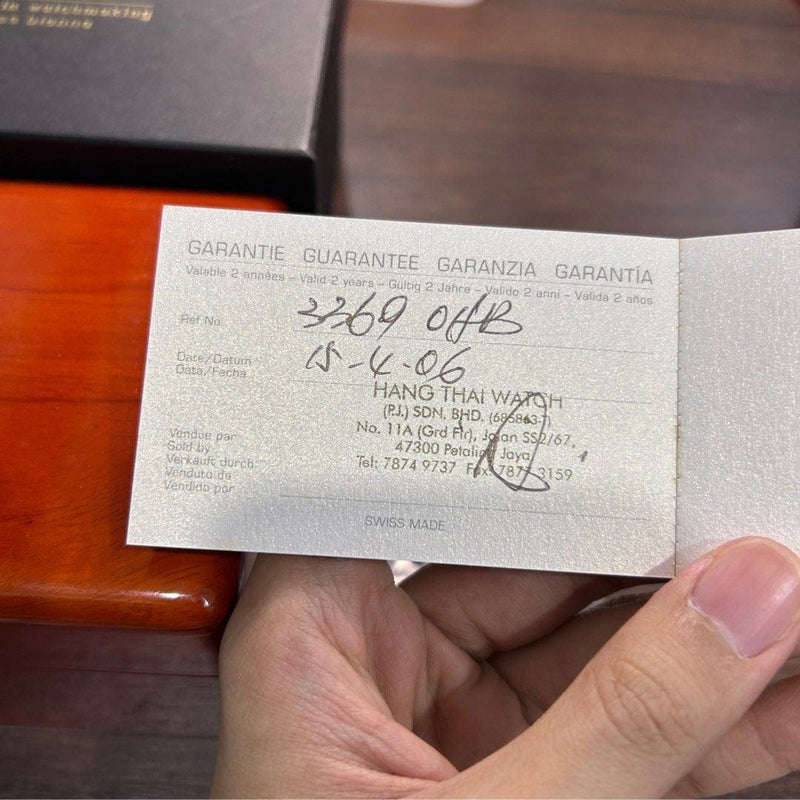 in watchmaking
GARANTIE GUARANTEE GARANZIA GARANTÍA
Valable 2 années – Valid 2 years – Gültig 2 Jahre – Valido 2 anni – Valida 2 años
Ref No. 3369 OHB
Date/Datum 15-4-06
Data/Fecha
HANG THAI WATCH
(P.J.) SDN. BHD.
No. 11A (Grd Flr), Jalan SS2/67,
47300 Petaling Jaya
Tel: 7874 9737 Fax: 7877 3159
Vendue par
Sold by
Verkauft durch
Venduto da
Vendido por
SWISS MADE